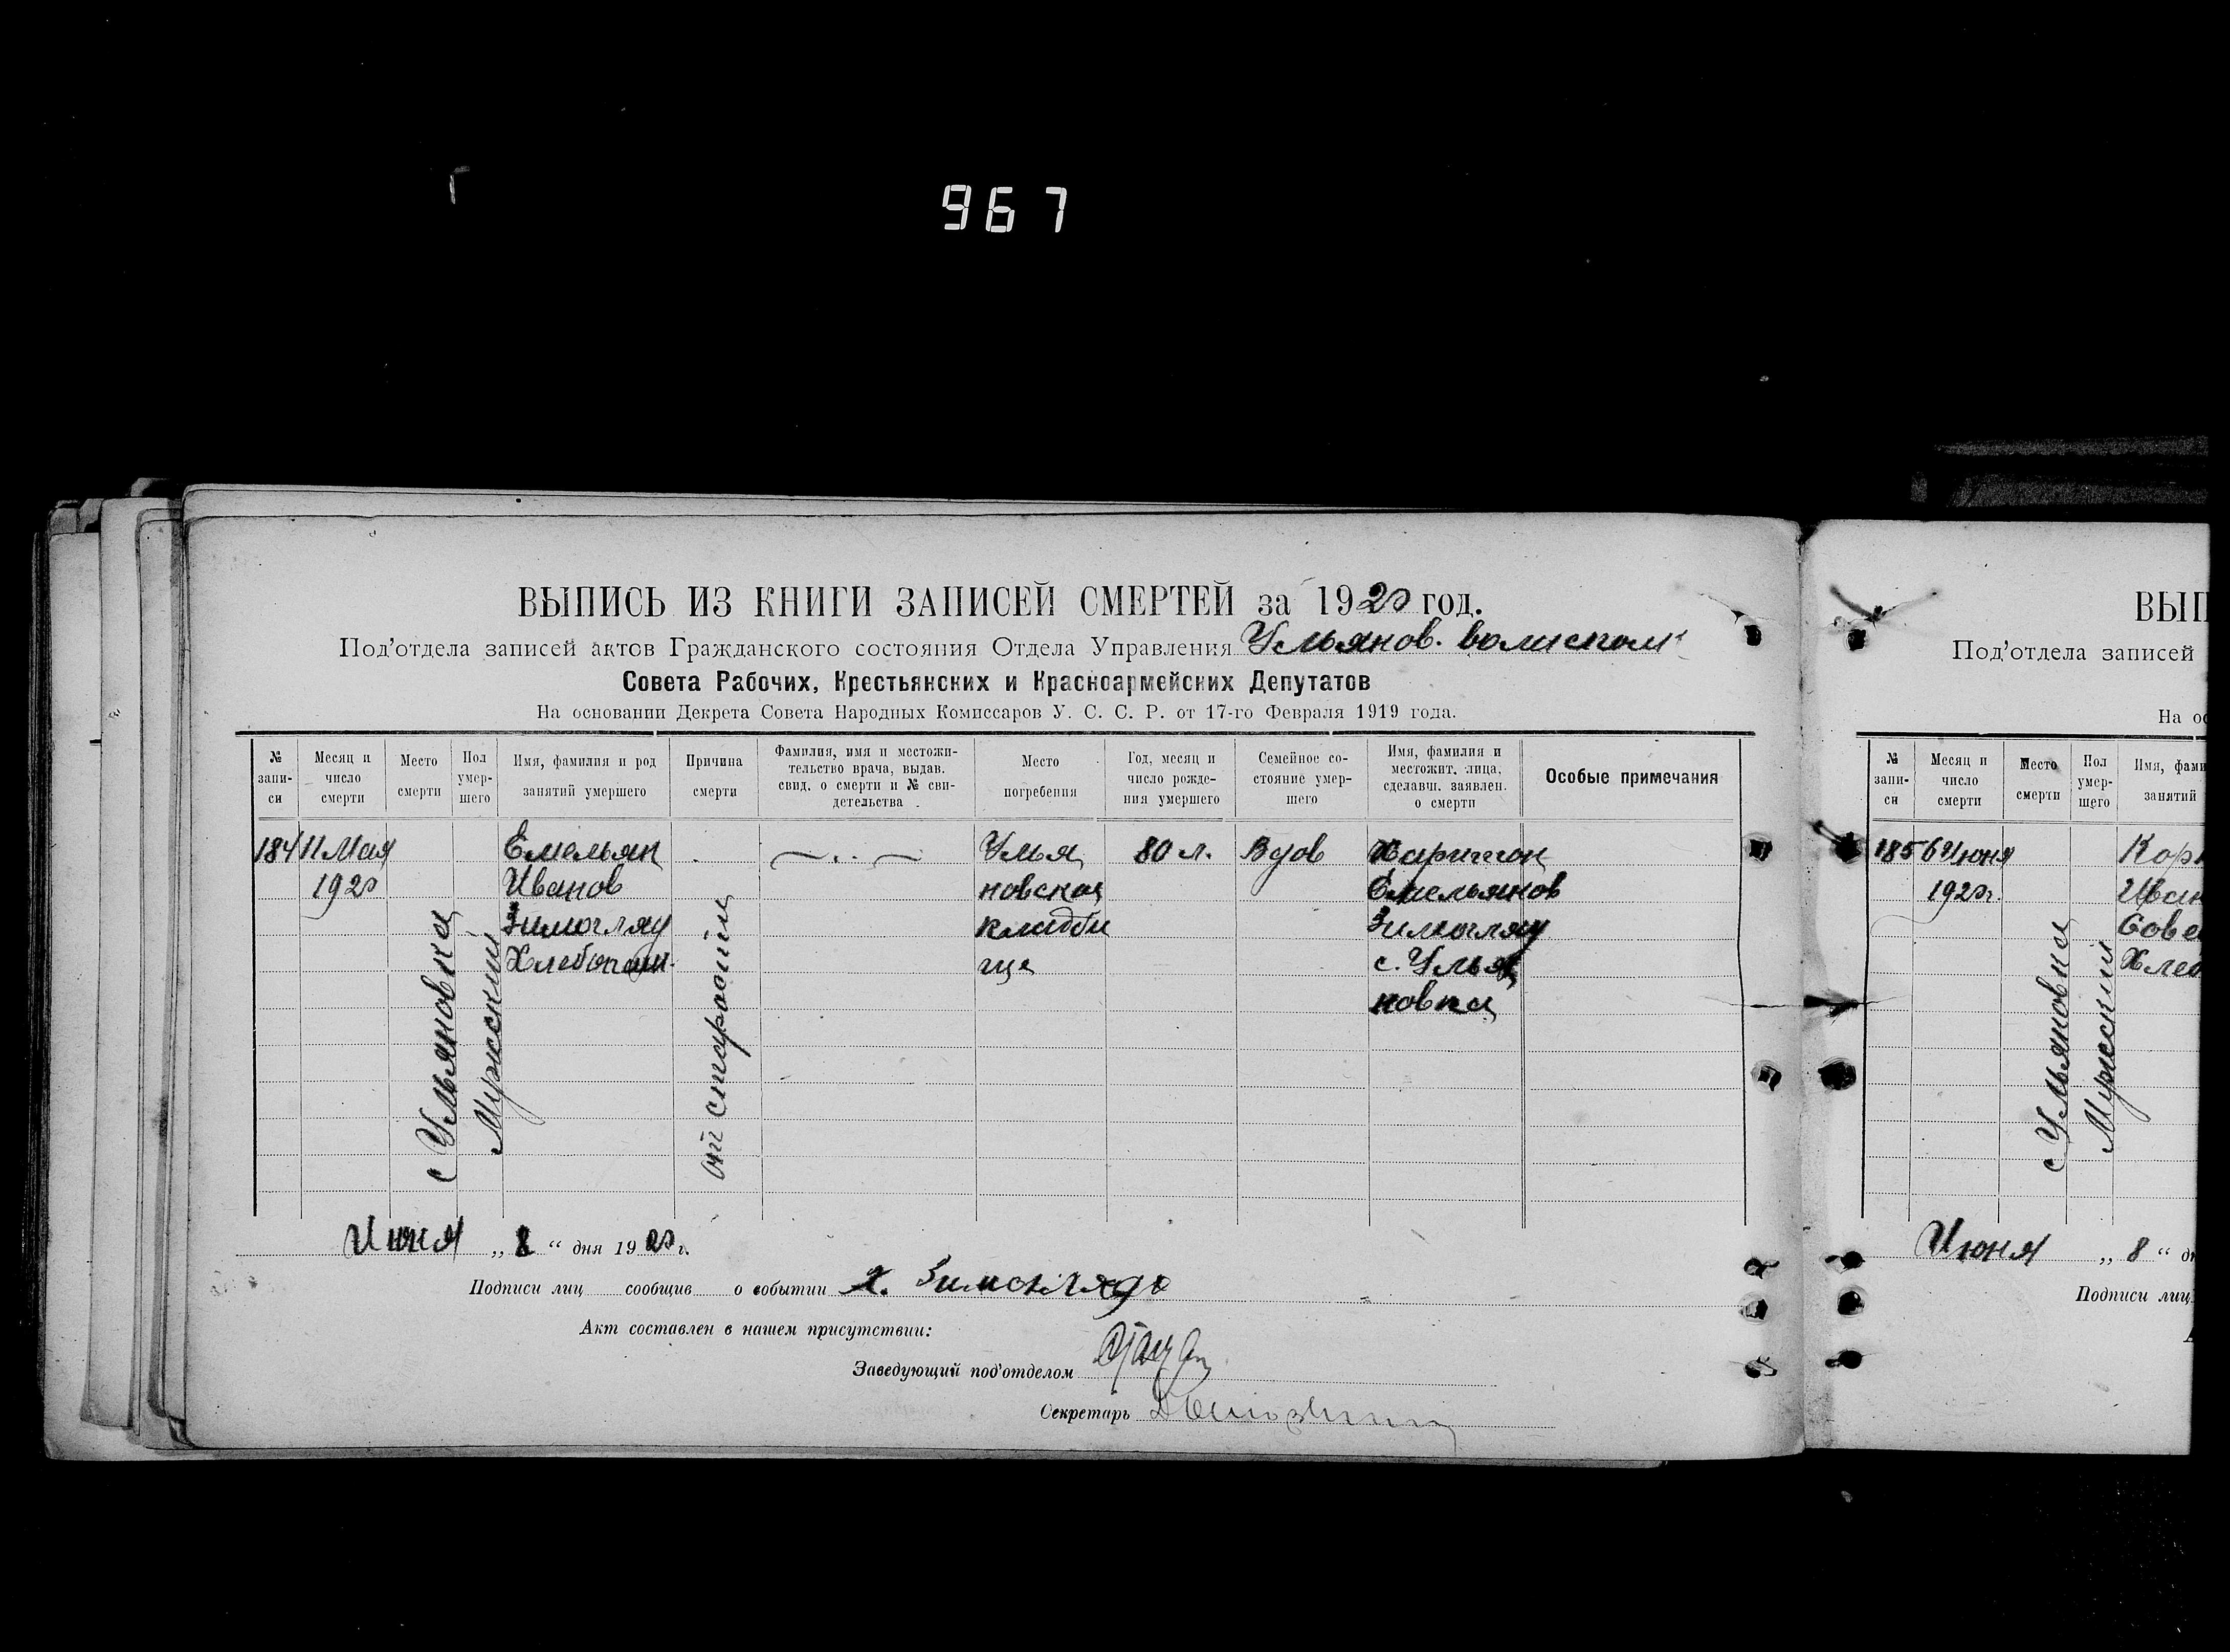 967
ВЫПИСЬ ИЗ КНИГИ ЗАПИСЕЙ СМЕРТЕЙ за 1920 год.
Под'отдела записей актов Гражданского состояния Отдела Управления Ульянов. волисполк
Совета Рабочих, Крестьянских и Красноармейских Депутатов
На основании Декрета Совета Народных Комиссаров У. С. С. Р. от 17-го Февраля 1919 года.
№ запи-си
Месяц и число смерти
Место смерти
Пол умер-шего
Имя, фамилия и род занятий умершего
Причина смерти
Фамилия, имя и местожи-тельство врача, выдав. свид. о смерти и № сви-детельства
Место погребения
Год, месяц и число рожде-ния умершего
Семейное со-стояние умер-шего
Имя, фамилия и местожит. лица, сделавш. заявлен. о смерти
Особые примечания
184
11 Мая
1920
с Ульяновка
Мужский
Емельян
Иванов
Зимогляд
Хлебопаш.
от старости
Улья
новская
кладби
ще
80 л.
Вдов
Харитон
Емельянов
Зимогляд
с. Улья
новка
Июня „ 8 “ дня 1920 г.
Подписи лиц сообщив о событии Х. Зимогляд
Акт составлен в нашем присутствии:
Заведующий под'отделом
Секретарь
ВЫП
Под'отдела записей
На ос
№ запи-си
Месяц и число смерти
Место смерти
Пол умер-шего
Имя, фами
занятий
185
6 Июня
1920 г.
с Ульяновка
Мужский
Кор
Иван
Сове
Хлеб
Июня „ 8 “ дн
Подписи лиц